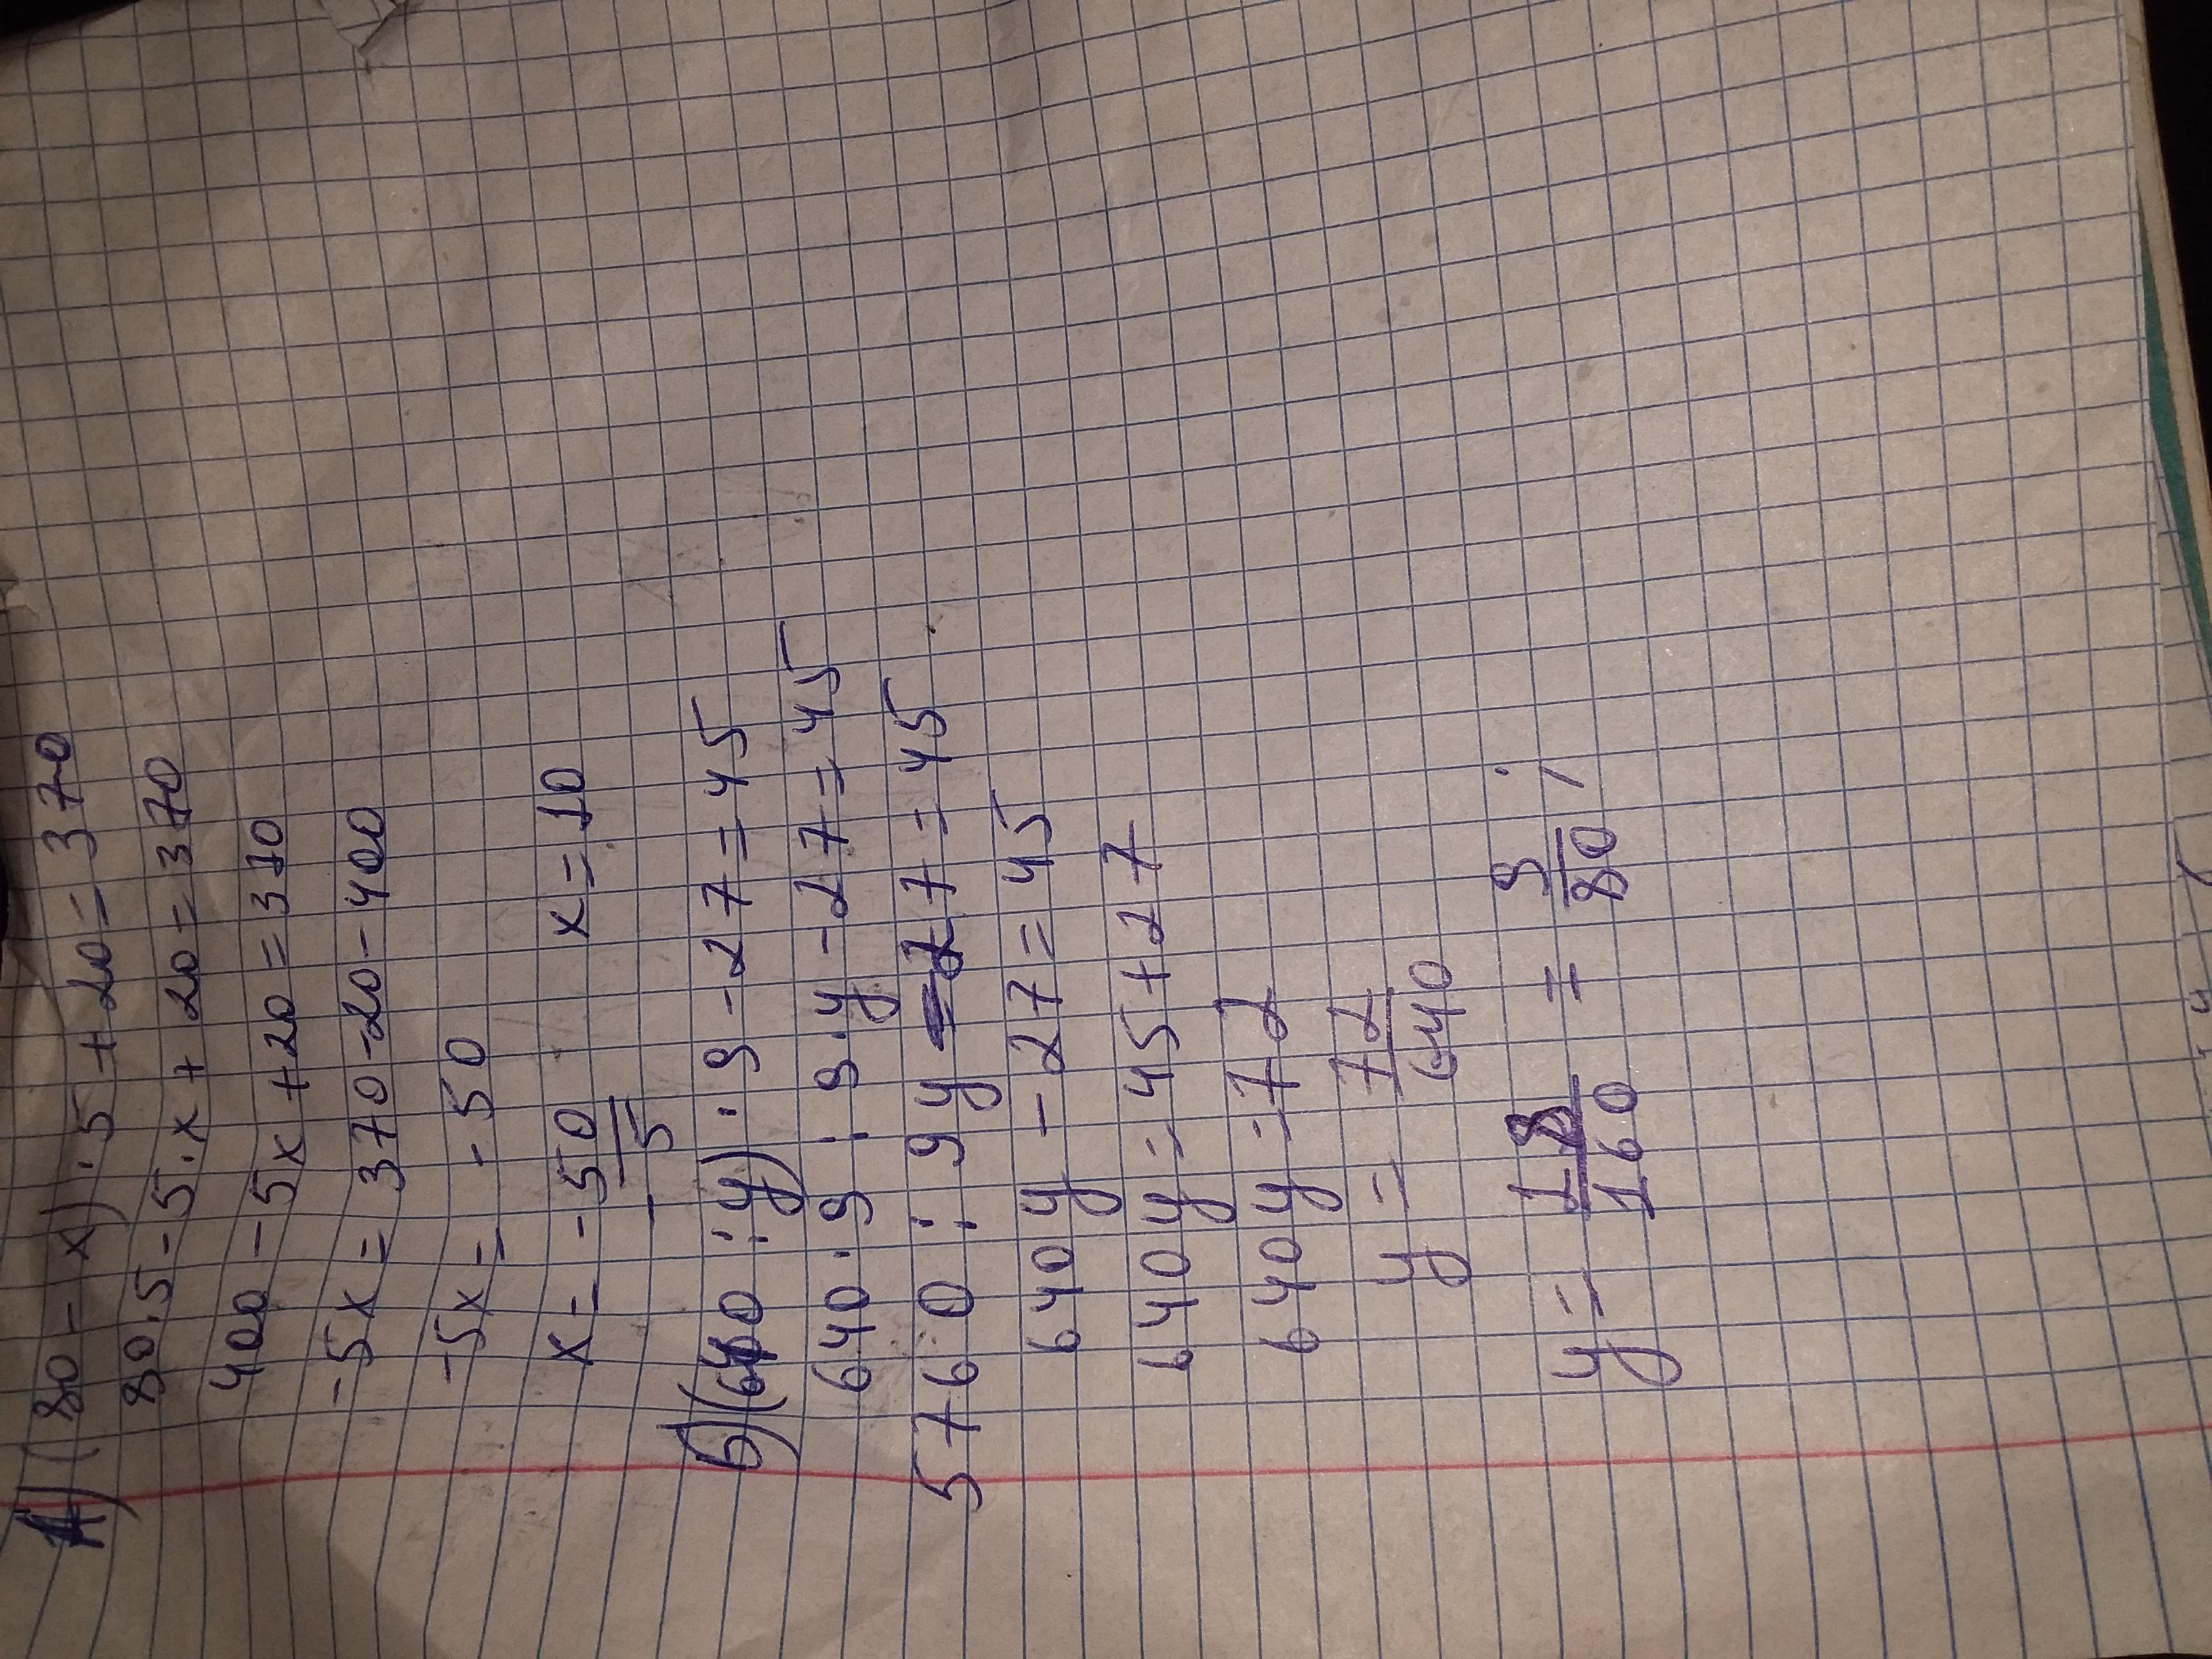 А) (80 - x) · 5 + 20 = 370
80·5 - 5·x + 20 = 370
400 - 5x + 20 = 310
-5x = 370 - 20 - 400
-5x = -50
x = -50/-5 x = 10
б) (640 : y) · 9 - 27 = 45
640·9 : 9·y - 27 = 45
5760 : 9y - 27 = 45
640y - 27 = 45
640y = 45 + 27
640y = 72
y = 72/640
y = 18/160 = 9/80 ;